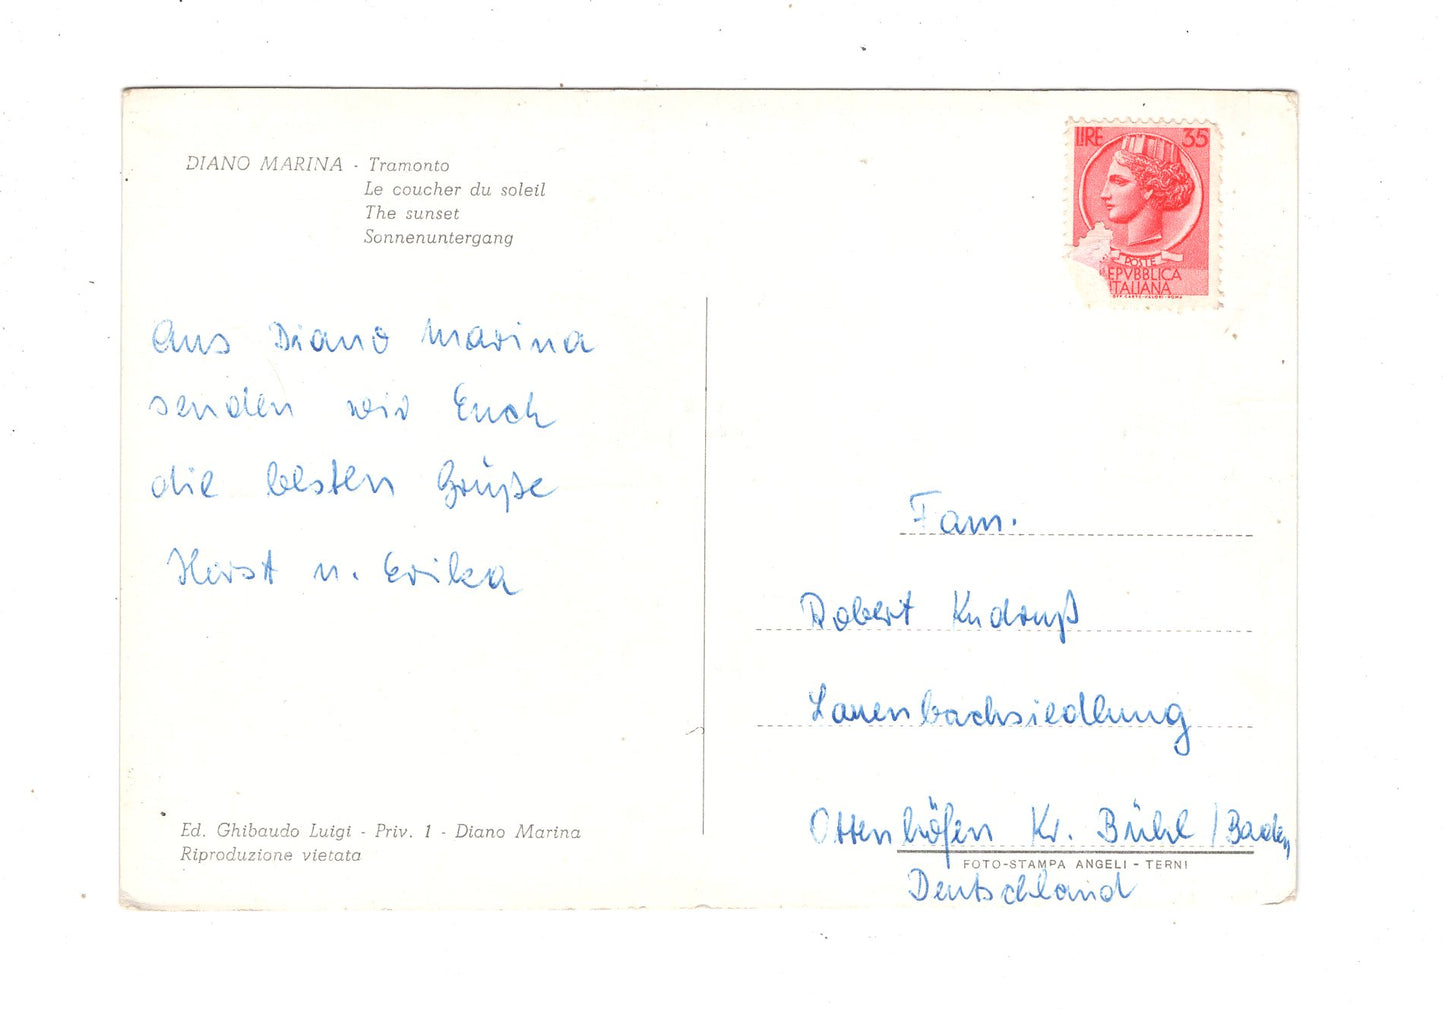 DIANO MARINA - Tramonto
Le coucher du soleil
The sunset
Sonnenuntergang
Aus Diano Marina
senden wir Euch
die besten Grüße
Horst u. Erika
Ed. Ghibaudo Luigi - Priv. 1 - Diano Marina
Riproduzione vietata
LIRE 35
POSTE
REPVBBLICA
ITALIANA
OFF. CARTE-VALORI-ROMA
Fam.
Robert Kndruß
Lauenbachsiedlung
Ottenhöfen Kr. Bühl / Baden
FOTO-STAMPA ANGELI - TERNI
Deutschland